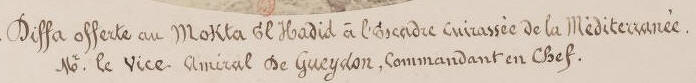 Diffa offerte au Mokta El Hadid à l'Escadre Cuirassée de la Méditerranée.
Mr. le Vice-Amiral De Gueydon, Commandant en Chef.